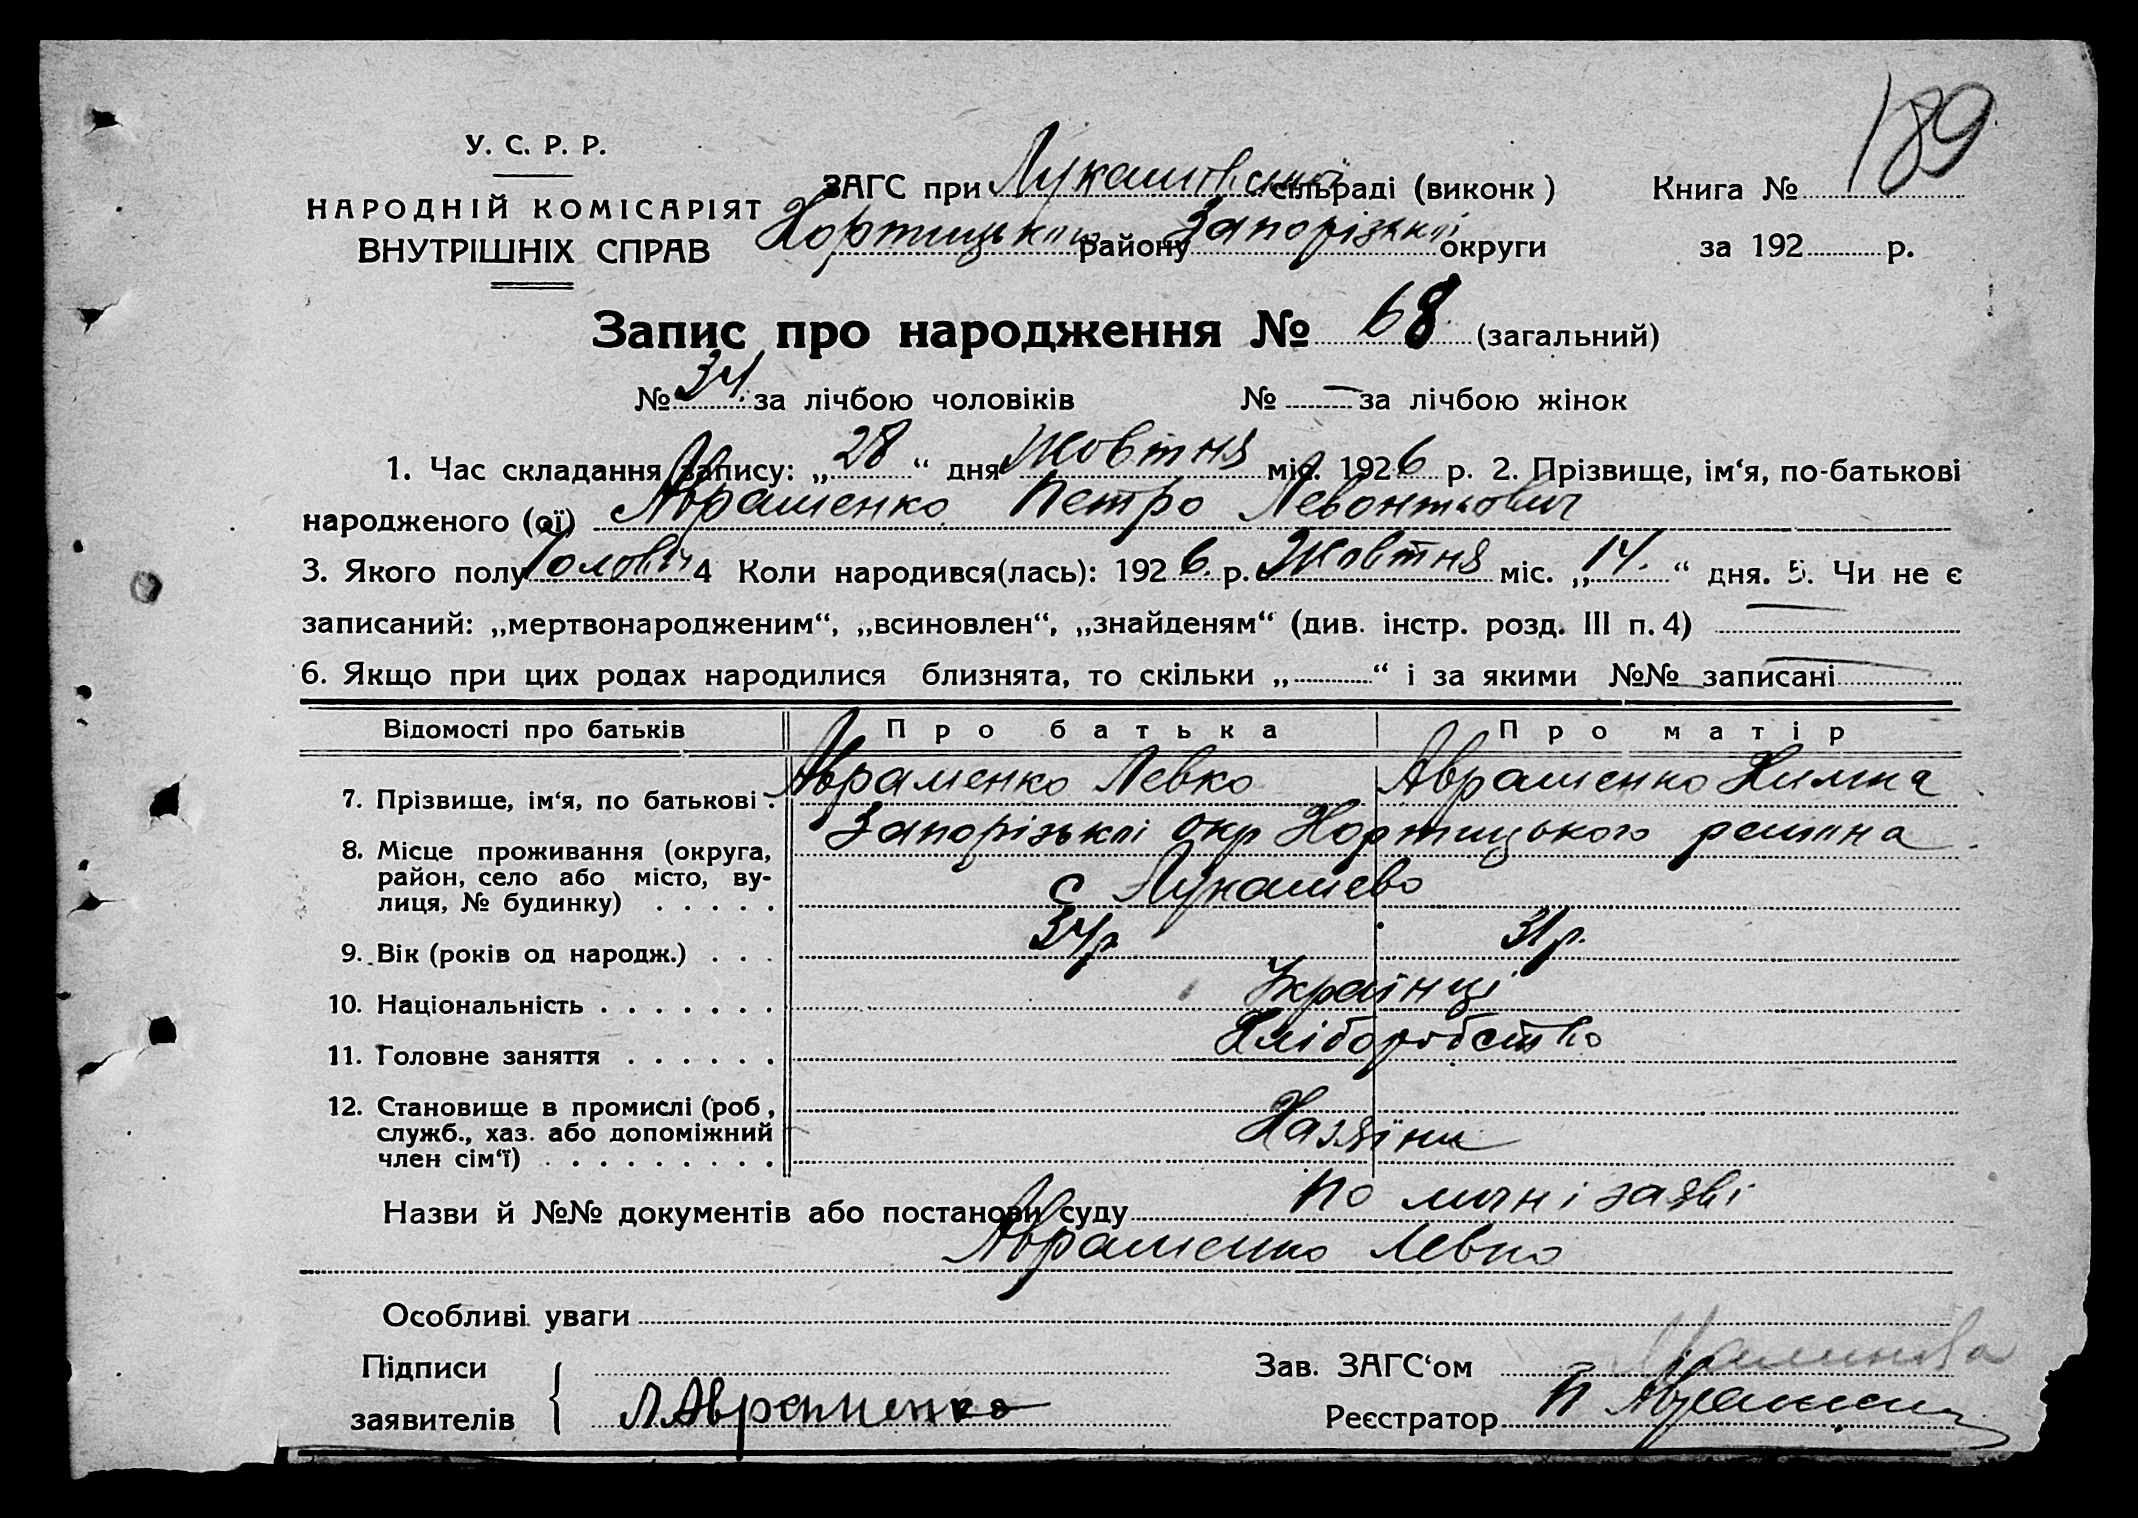 189
У. С. Р. Р.
НАРОДНІЙ КОМІСАРІЯТ
ВНУТРІШНІХ СПРАВ
ЗАГС при Лукашовській сільраді (виконк) Книга №
Хортицького району Запорізької округи за 192 р.
Запис про народження № 68 (загальний)
№ 34. за лічбою чоловіків № — за лічбою жінок
1. Час складання запису: „28“ дня Жовтня міс. 1926 р. 2. Прізвище, ім‘я, по-батькові
народженого (ої) Авраменко Петро Левонтьович
3. Якого полу Чоловіч 4 Коли народився(лась): 1926 р. Жовтня міс. „14.“ дня. 5. Чи не є
записаний: „мертвонародженим“, „всиновлен“, „знайденям“ (див. інстр. розд. III п. 4) —
6. Якщо при цих родах народилися близнята, то скільки „ “ і за якими №№ записані —
Відомості про батьків Про батька Про матір
7. Прізвище, ім‘я, по батькові . Авраменко Левко Авраменко Химка
8. Місце проживання (округа, Запорізької окр Хортицького району
район, село або місто, ву- с Лукашево
лиця, № будинку) . . . . .
9. Вік (років од народж.) . . . 34р 31р.
10. Національність . . . . . . . Українці
11. Головне заняття . . . . . . Хліборобство
12. Становище в промислі (роб,
служб., хаз. або допоміжний Хазяїни
член сім‘ї) . . . . . . . . .
Назви й №№ документів або постанови суду по личні заяві
Авраменко Левко
Особливі уваги
Підписи Зав. ЗАГС‘ом
заявителів Л Авраменко Реєстратор П Авраменко